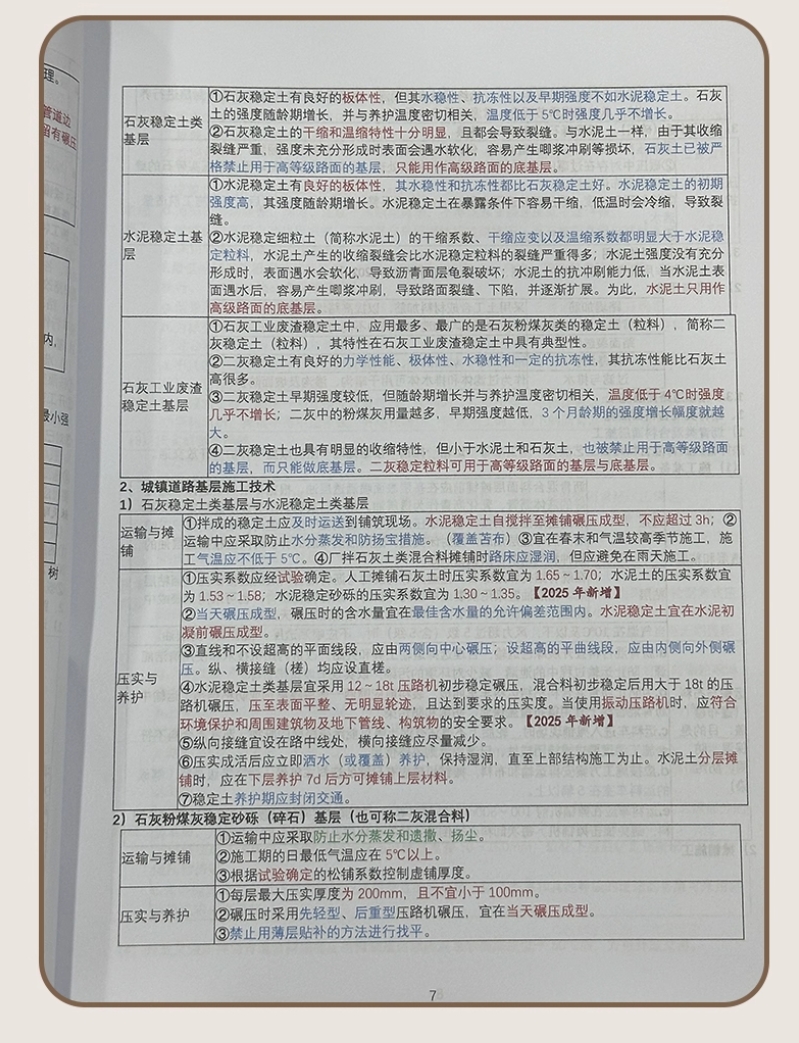 理。
管道边
留有碾压
内,
最小强
树
石灰稳定土类
基层
①石灰稳定土有良好的板体性，但其水稳性、抗冻性以及早期强度不如水泥稳定土。石灰
土的强度随龄期增长，并与养护温度密切相关，温度低于 5℃时强度几乎不增长。
②石灰稳定土的干缩和温缩特性十分明显，且都会导致裂缝。与水泥土一样，由于其收缩
裂缝严重，强度未充分形成时表面会遇水软化，容易产生唧浆冲刷等损坏，石灰土已被严
格禁止用于高等级路面的基层，只能用作高级路面的底基层。
水泥稳定土基
层
①水泥稳定土有良好的板体性，其水稳性和抗冻性都比石灰稳定土好。水泥稳定土的初期
强度高，其强度随龄期增长。水泥稳定土在暴露条件下容易干缩，低温时会冷缩，导致裂
缝。
②水泥稳定细粒土（简称水泥土）的干缩系数、干缩应变以及温缩系数都明显大于水泥稳
定粒料，水泥土产生的收缩裂缝会比水泥稳定粒料的裂缝严重得多；水泥土强度没有充分
形成时，表面遇水会软化，导致沥青面层龟裂破坏；水泥土的抗冲刷能力低，当水泥土表
面遇水后，容易产生唧浆冲刷，导致路面裂缝、下陷，并逐渐扩展。为此，水泥土只用作
高级路面的底基层。
石灰工业废渣
稳定土基层
①石灰工业废渣稳定土中，应用最多、最广的是石灰粉煤灰类的稳定土（粒料），简称二
灰稳定土（粒料），其特性在石灰工业废渣稳定土中具有典型性。
②二灰稳定土有良好的力学性能、板体性、水稳性和一定的抗冻性，其抗冻性能比石灰土
高很多。
③二灰稳定土早期强度较低，但随龄期增长并与养护温度密切相关，温度低于 4℃时强度
几乎不增长；二灰中的粉煤灰用量越多，早期强度越低，3 个月龄期的强度增长幅度就越
大。
④二灰稳定土也具有明显的收缩特性，但小于水泥土和石灰土，也被禁止用于高等级路面
的基层，而只能做底基层。二灰稳定粒料可用于高等级路面的基层与底基层。
2、城镇道路基层施工技术
1）石灰稳定土类基层与水泥稳定土类基层
运输与摊
铺
①拌成的稳定土应及时运送到铺筑现场。水泥稳定土自搅拌至摊铺碾压成型，不应超过 3h；②
运输中应采取防止水分蒸发和防扬尘措施。（覆盖苫布）③宜在春末和气温较高季节施工，施
工气温应不低于 5℃。④厂拌石灰土类混合料摊铺时路床应湿润，但应避免在雨天施工。
压实与
养护
①压实系数应经试验确定。人工摊铺石灰土时压实系数宜为 1.65～1.70；水泥土的压实系数宜
为 1.53～1.58；水泥稳定砂砾的压实系数宜为 1.30～1.35。【2025 年新增】
②当天碾压成型，碾压时的含水量宜在最佳含水量的允许偏差范围内。水泥稳定土宜在水泥初
凝前碾压成型。
③直线和不设超高的平面线段，应由两侧向中心碾压；设超高的平曲线段，应由内侧向外侧碾
压。纵、横接缝（槎）均应设直槎。
④水泥稳定土类基层宜采用 12～18t 压路机初步稳定碾压，混合料初步稳定后用大于 18t 的压
路机碾压，压至表面平整、无明显轮迹，且达到要求的压实度。当使用振动压路机时，应符合
环境保护和周围建筑物及地下管线、构筑物的安全要求。【2025 年新增】
⑤纵向接缝宜设在路中线处，横向接缝应尽量减少。
⑥压实成活后应立即洒水（或覆盖）养护，保持湿润，直至上部结构施工为止。水泥土分层摊
铺时，应在下层养护 7d 后方可摊铺上层材料。
⑦稳定土养护期应封闭交通。
2）石灰粉煤灰稳定砂砾（碎石）基层（也可称二灰混合料）
运输与摊铺
①运输中应采取防止水分蒸发和遗撒、扬尘。
②施工期的日最低气温应在 5℃以上。
③根据试验确定的松铺系数控制虚铺厚度。
压实与养护
①每层最大压实厚度为 200mm，且不宜小于 100mm。
②碾压时采用先轻型、后重型压路机碾压，宜在当天碾压成型。
③禁止用薄层贴补的方法进行找平。
7